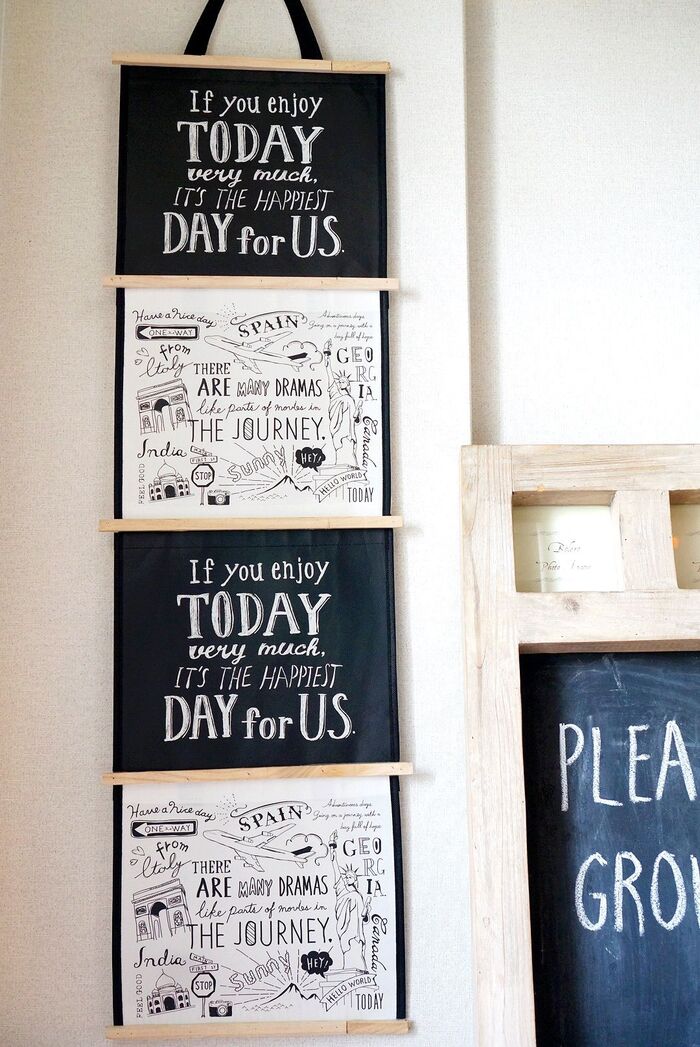 If you enjoy
TODAY
very much,
IT'S THE HAPPIEST
DAY for US.
Have a nice day
SPAIN
Adventurous days.
Going on a journey, with a
bag full of hope
ONE WAY
from
Italy
GEO
RG
IA
THERE
ARE MANY DRAMAS
like parts of movies in
THE JOURNEY.
Canada
India
FIRST ST
STOP
FEEL GOOD
Sunny
HEY!
HELLO WORLD
TODAY
If you enjoy
TODAY
very much,
IT'S THE HAPPIEST
DAY for US.
Have a nice day
SPAIN
Adventurous days.
Going on a journey, with a
bag full of hope
ONE WAY
from
Italy
GEO
RG
IA
THERE
ARE MANY DRAMAS
like parts of movies in
THE JOURNEY.
Canada
India
FIRST ST
STOP
FEEL GOOD
Sunny
HEY!
HELLO WORLD
TODAY
Photo Frame
PLEA
GROW